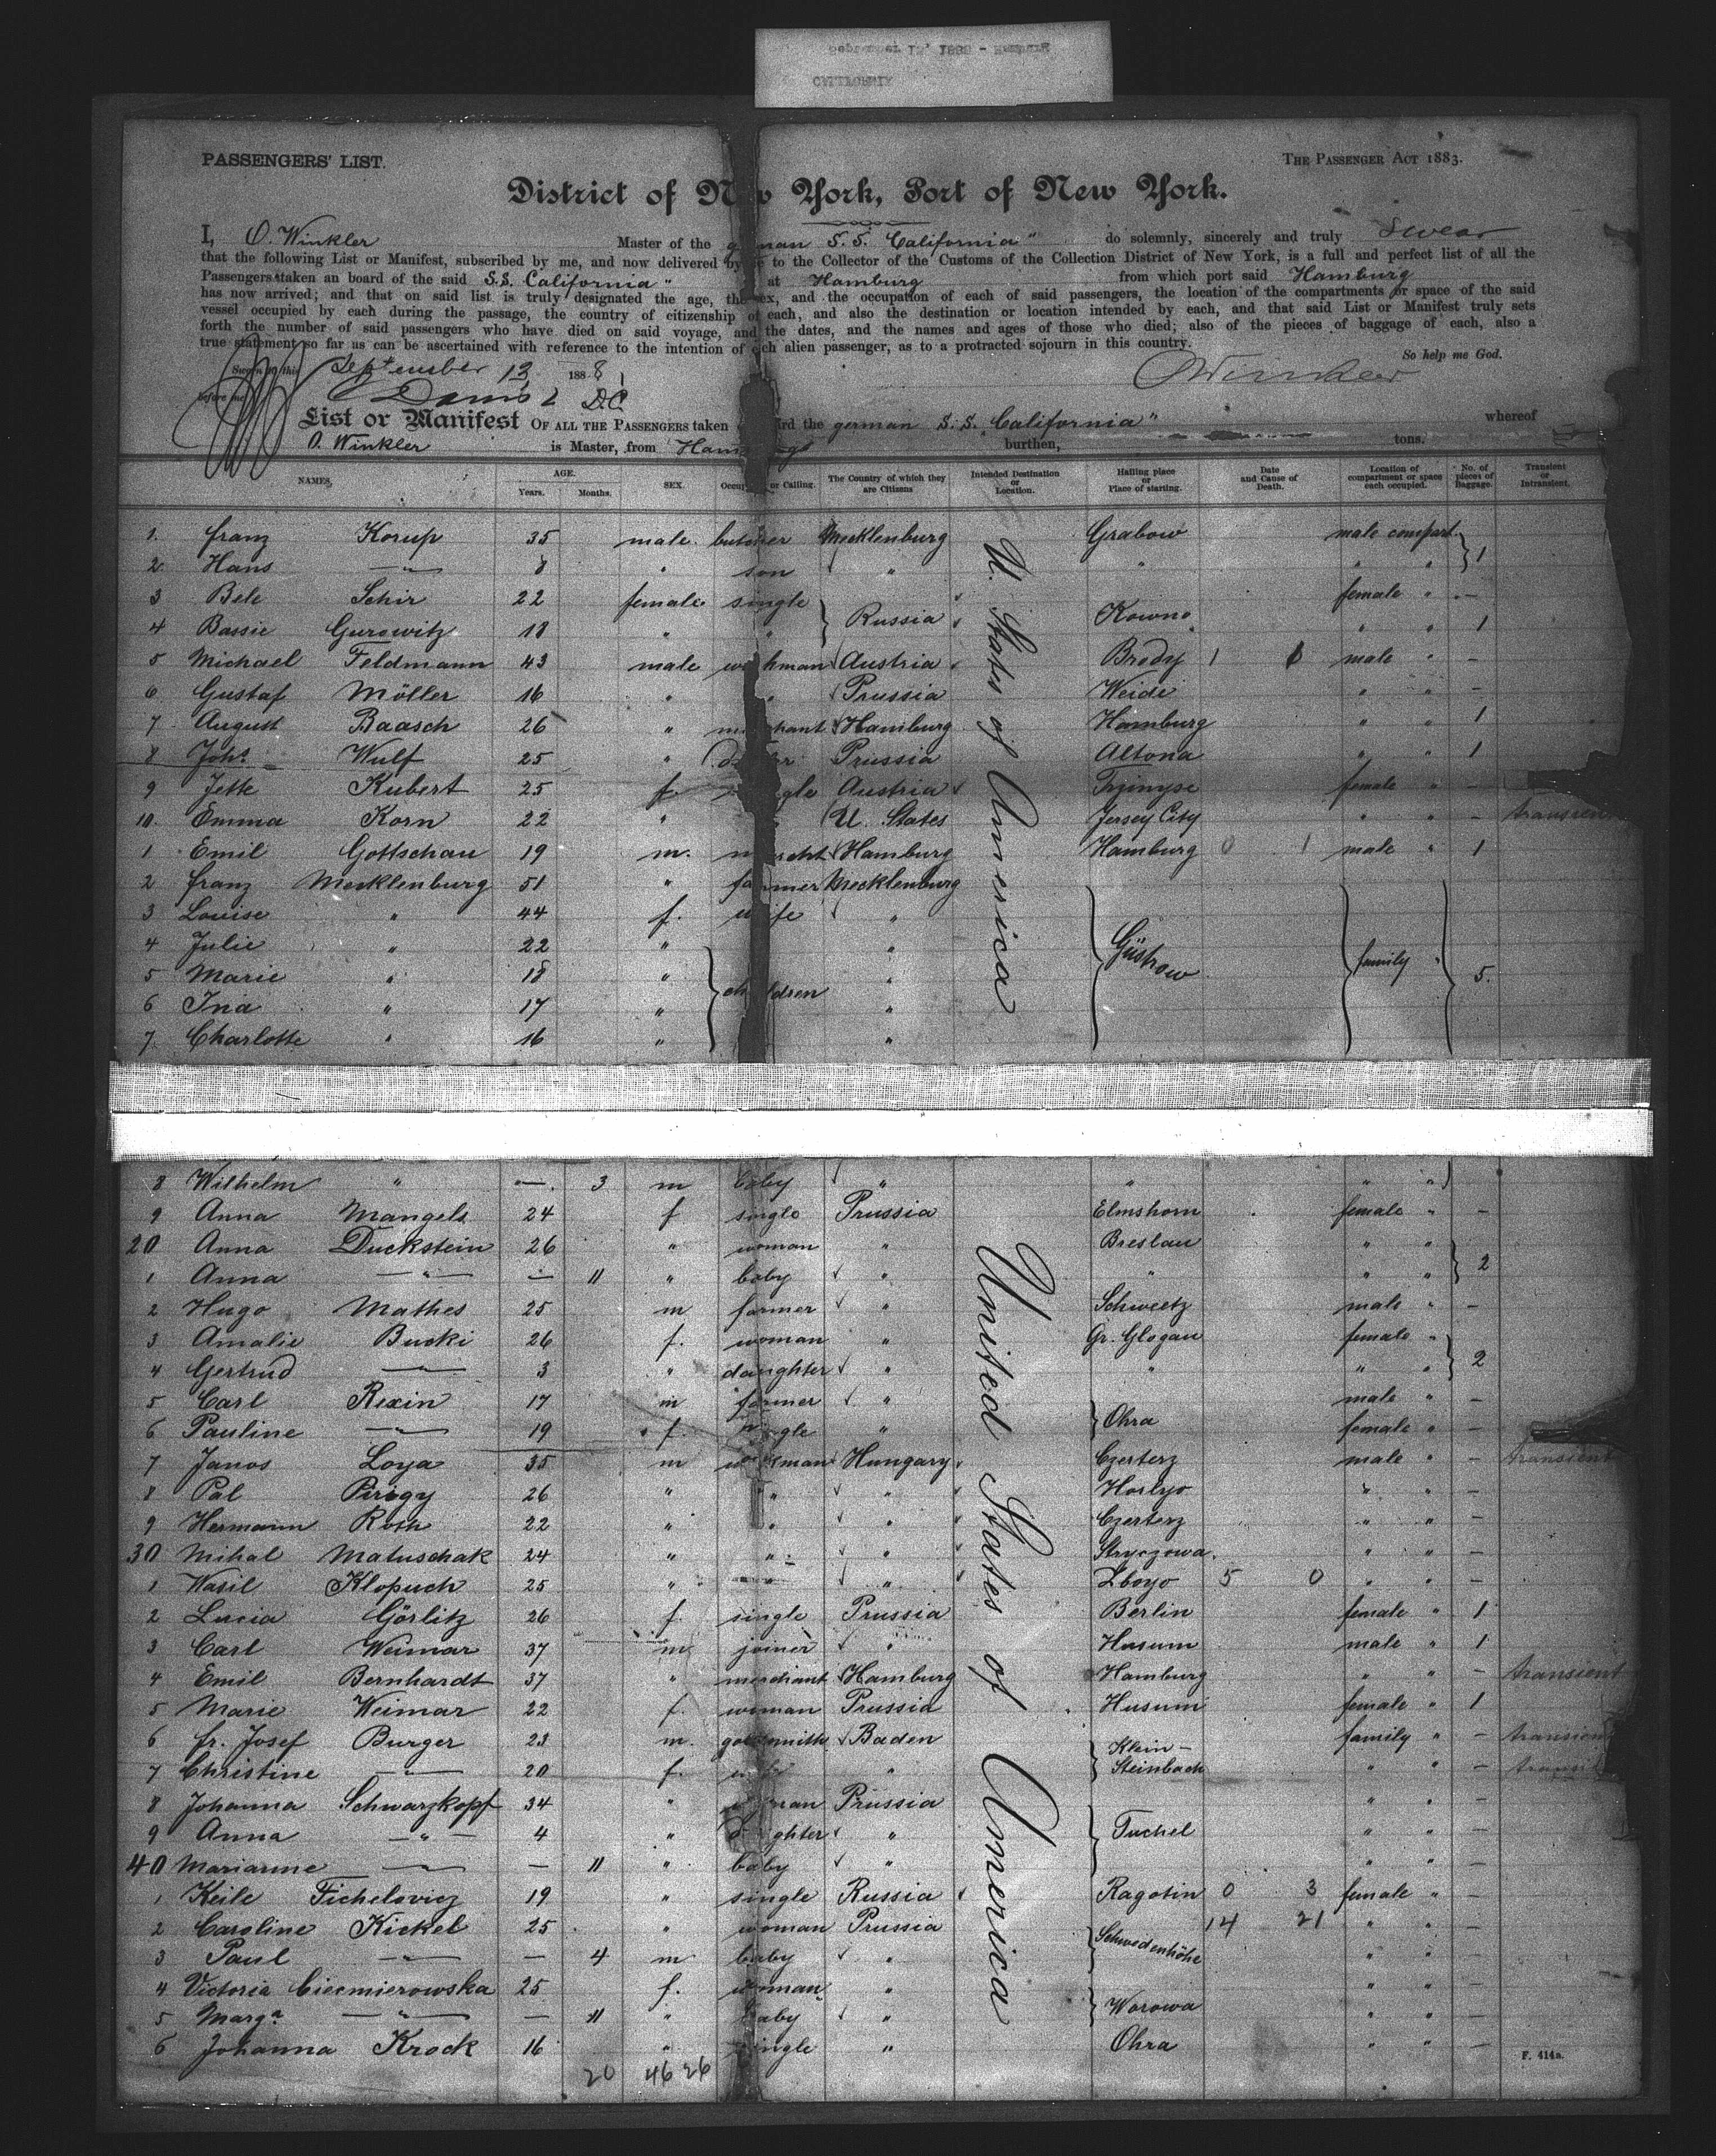 PASSENGERS' LIST.
THE PASSENGER ACT 1883.
District of New York, Port of New York.
I, O. Winkler Master of the german S.S. California" do solemnly, sincerely and truly swear
that the following List or Manifest, subscribed by me, and now delivered by me to the Collector of the Customs of the Collection District of New York, is a full and perfect list of all the
Passengers taken an board of the said S.S. California" at Hamburg from which port said Hamburg
has now arrived; and that on said list is truly designated the age, the sex, and the occupation of each of said passengers, the location of the compartments or space of the said
vessel occupied by each during the passage, the country of citizenship of each, and also the destination or location intended by each, and that said List or Manifest truly sets
forth the number of said passengers who have died on said voyage, and the dates, and the names and ages of those who died; also of the pieces of baggage of each, also a
true statement so far as can be ascertained with reference to the intention of each alien passenger, as to a protracted sojourn in this country.
So help me God.
Sworn to this September 13 1888
OWinkler
before me D.C.
List or Manifest OF ALL THE PASSENGERS taken the german S.S. California" whereof
O. Winkler is Master, from Hamburg burthen, tons.
NAMES. AGE. Years. Months. SEX. Occupation or Calling. The Country of which they are Citizens Intended Destination or Location. Hailing place or Place of starting. Date and Cause of Death. Location of compartment or space each occupied. No. of pieces of Baggage. Transient or Intransient.
U. States of America
1. Franz Korup 35 male butcher Mecklenburg Grabow male compart. 1
2 Hans —"— 8 " son " " " "
3 Bele Schir 22 female single Russia Kowno female " —
4 Bassie Gurowitz 18 " " " " 1
5 Michael Feldmann 43 male workman Austria Brody 1 male " —
6 Gustaf Möller 16 " " Prussia Weide " " —
7 August Baasch 26 " merchant Hamburg Hamburg " " 1
8 Johs. Wulf 25 " Prussia Altona " " 1
9 Jette Kubert 25 f. single Austria Trzinyse female " —
10. Emma Korn 22 " U. States Jersey City " " — transient
1 Emil Gottschau 19 m. mercht Hamburg Hamburg 0 1 male " 1
2 Franz Mecklenburg 51 " farmer Mecklenburg Güstrow family " 5.
3 Louise " 44 f. wife "
4 Julie " 22 " children "
5 Marie " 18 " "
6 Ina " 17 " "
7 Charlotte " 16 " "
United States of America
8 Wilhelm " — 3 m baby " " " "
9 Anna Mangels 24 f single Prussia Elmshorn female " —
20 Anna Duckstein 26 " woman " Breslau " " 2
1 Anna —"— — 11 " baby " " " "
2 Hugo Mathes 25 m farmer " Schweetz male " —
3 Amalie Bucki 26 f. woman " Gr. Glogau female " 2
4 Gertrud —"— 3 " daughter " " " "
5 Carl Rexin 17 m farmer " Ohra male " —
6 Pauline —"— 19 f. single " female " —
7 Janos Loya 35 m workman Hungary Czertez male " — transient
8 Pal Pirogy 26 " " " Horlyo " " —
9 Hermann Roth 22 " " " Czertez " " —
30 Mihal Matuschak 24 " " " Stryczowa " " —
1 Wasil Klopuch 25 " " " Zboyo 5 0 " " —
2 Lucia Görlitz 26 f. single Prussia Berlin female " 1
3 Carl Weimar 37 m joiner " Husum male " 1
4 Emil Bernhardt 37 " merchant Hamburg Hamburg " " — transient
5 Marie Weimar 22 f. woman Prussia Husum female " 1
6 Fr. Josef Burger 23 m. goldsmith Baden Klein- family " — transient
7 Christine —"— 20 f. wife " Steinbach " " —
8 Johanna Schwarzkopf 34 " woman Prussia Tuchel " " —
9 Anna —"— 4 " daughter " " " —
40 Marianne —"— — 11 " baby " " " —
1 Keile Fichelovicz 19 " single Russia Ragotin 0 3 female " —
2 Caroline Kickel 25 " woman Prussia Schwedenhöhe 14 21 " " —
3 Paul —"— — 4 m baby " " "
4 Victoria Ciecmierowska 25 f. woman " Worowa " " —
5 Marga. —"— — 11 " baby " " " —
6 Johanna Krock 16 " single " Ohra " " —
20 46 26
F. 414a.